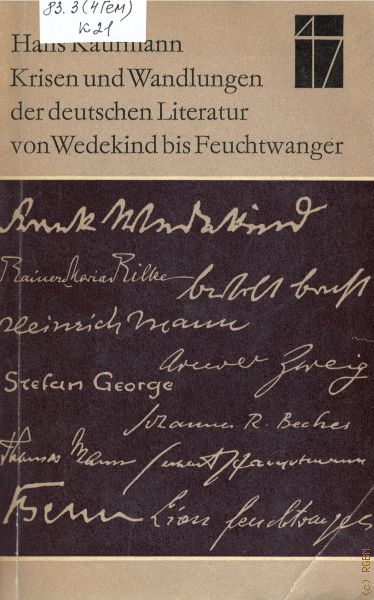 83.3(4Гем)
К21
Hans Kaufmann
Krisen und Wandlungen
der deutschen Literatur
von Wedekind bis Feuchtwanger
Frank Wedekind
Rainer Maria Rilke
bertolt brecht
Heinrich Mann
Arnold Zweig
Stefan George
Johannes R. Becher
Thomas Mann Gerhart Hauptmann
Benn Lion Feuchtwanger
(c) RGBM